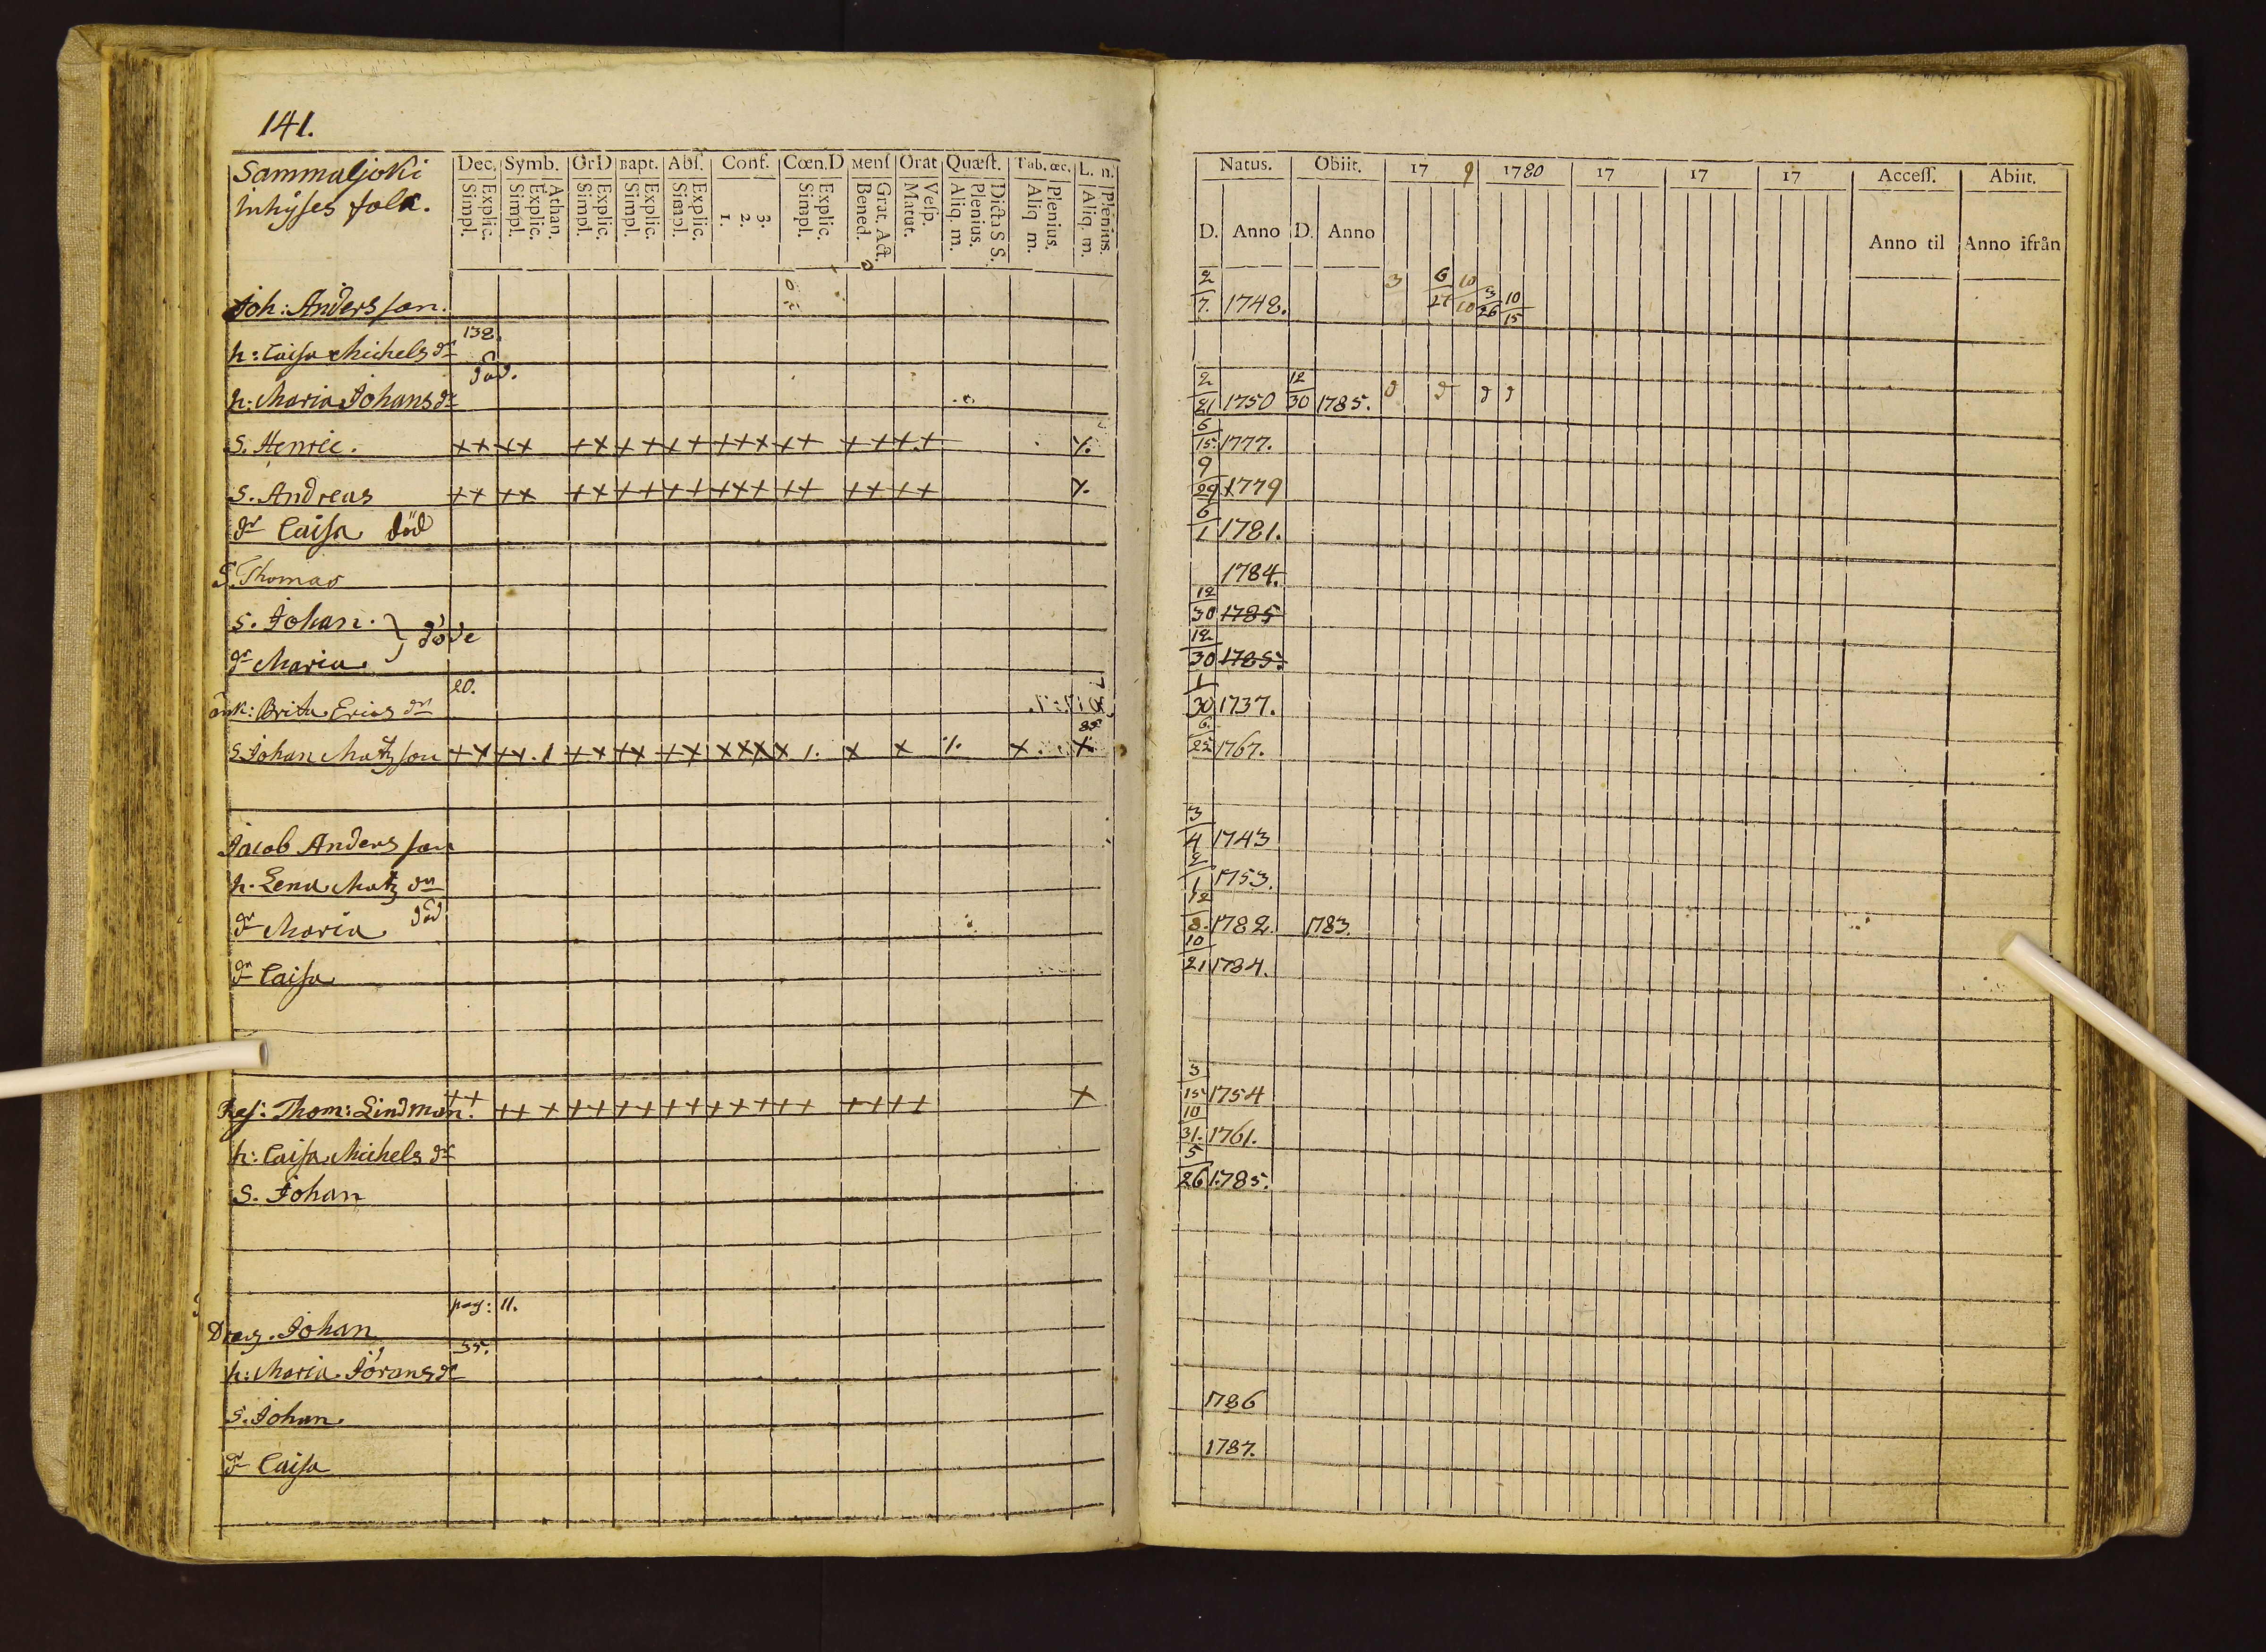 141.
Sammaljoki
Inhyses folk.
Dec. Symb. Or D Bapt. Abſ. Conf. Cœn. D Menſ Orat Quæſt. Tab. œc. L. n.
Explic. Simpl. Athan. Explic. Simpl. Explic. Simpl. Explic. Simpl. Explic. Simpl. 3. 2. 1. Explic. Simpl. Grat. Act. Bened. Veſp. Matut. Dicta S S. Plenius. Aliq. m. Plenius. Aliq m. Plenius. Aliq. m.
Joh: Andersson.
h: Caisa Michels dr 138.
h: Maria Johans dr död.
S. Henric. ++ ++ ++ ++ ++ +++ ++ ++ ++ %.
S. Andreas ++ ++ ++ ++ ++ +++ ++ ++ ++ %.
dr Caisa död
S. Thomas
S. Johan. } döde
dr Maria
änk: Brita Erics dr 20.
S. Johan Matzson ++ ++ . 1 ++ ++ ++ XXXX 1. X X %. X X
Jacob Andersson
h. Lena Matz dr
dr Maria död
dr Caisa
Thom: Lindman. ++ ++ + ++ ++ ++ +++ ++ ++ ++ +
h: Caisa Michels dr
S. Johan
Drag. Johan pag: 11.
h: Maria Jörans dr 35.
S. Johan
dr Caisa
Natus. Obiit. 17 9 1780 17 17 17 Acceſſ. Abiit.
D. Anno D. Anno Anno til Anno ifrån
2/7. 1748. 3 6/27 10/10 3/26 10/15
2/21 1750 12/30 1785.
6/15. 1777.
9/29 1779
6/1 1781.
1784.
12/30 1785
12/30 1785.
1/30 1737.
6/25 1767.
3/4 1743
2/1 1753.
12/8. 1782. 1783.
10/21 1784.
3/15 1754
10/31. 1761.
5/26 1785.
1786
1787.